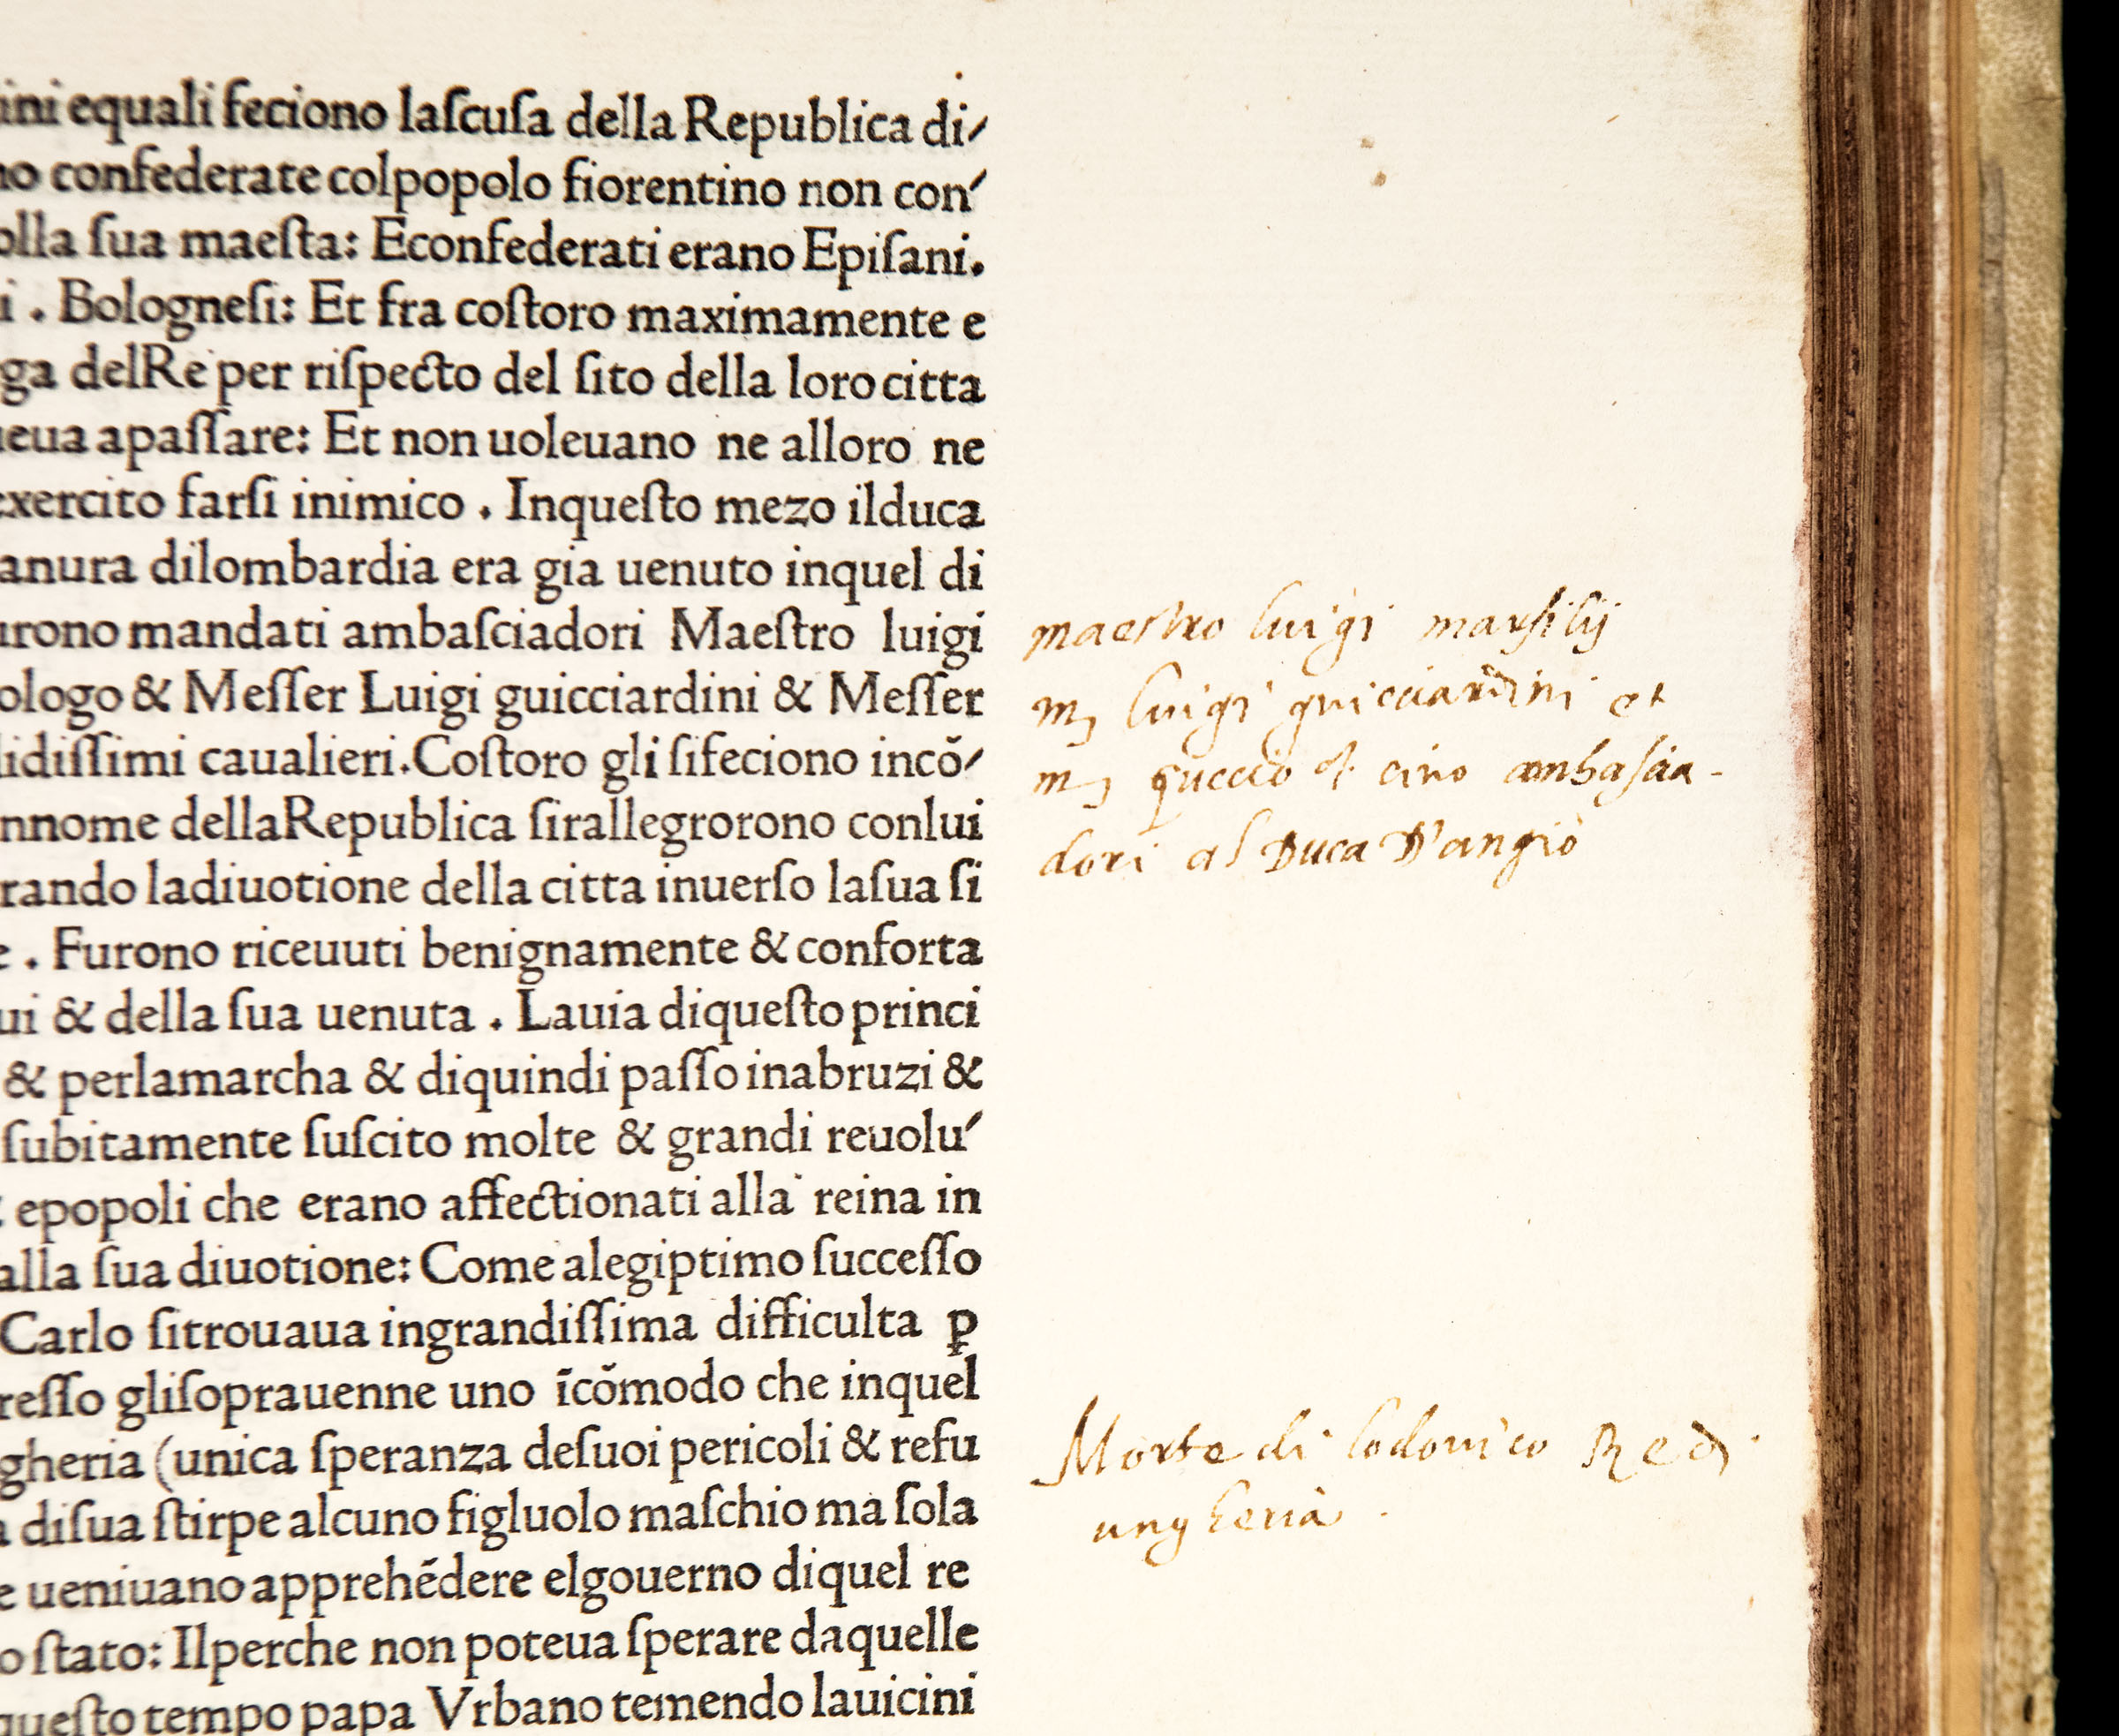 ini equali feciono laſcuſa della Republica di/
no confederate colpopolo fiorentino non con/
olla ſua maeſta: Econfederati erano Epiſani.
i . Bologneſi: Et fra coſtoro maximamente e
ga delRe per riſpecto del ſito della loro citta
ueua apaſſare: Et non uoleuano ne alloro ne
exercito farſi inimico . Inqueſto mezo ilduca
anura dilombardia era gia uenuto inquel di
urono mandati ambaſciadori Maeſtro luigi
ologo & Meſſer Luigi guicciardini & Meſſer
lidiſſimi caualieri.Coſtoro gli ſifeciono incõ/
nnome dellaRepublica ſirallegrorono conlui
rando ladiuotione della citta inuerſo laſua ſi
e . Furono riceuuti benignamente & conforta
ui & della ſua uenuta . Lauia diqueſto princi
& perlamarcha & diquindi paſſo inabruzi &
ſubitamente ſuſcito molte & grandi reuolu/
epopoli che erano affectionati alla reina in
alla ſua diuotione: Come alegiptimo ſucceſſo
Carlo ſitrouaua ingrandiſſima difficulta ꝑ
reſſo gliſoprauenne uno ĩcõmodo che inquel
gheria (unica ſperanza deſuoi pericoli & refu
a diſua ſtirpe alcuno figluolo maſchio ma ſola
e ueniuano apprehẽdere elgouerno diquel re
o ſtato: Ilperche non poteua ſperare daquelle
queſto tempo papa Vrbano temendo lauicini
maestro luigi marsilij
m, luigi guicciardini et
m, cino ambascia-
dori al Duca D'angiò
Morte di lodouico Re di
ungheria .